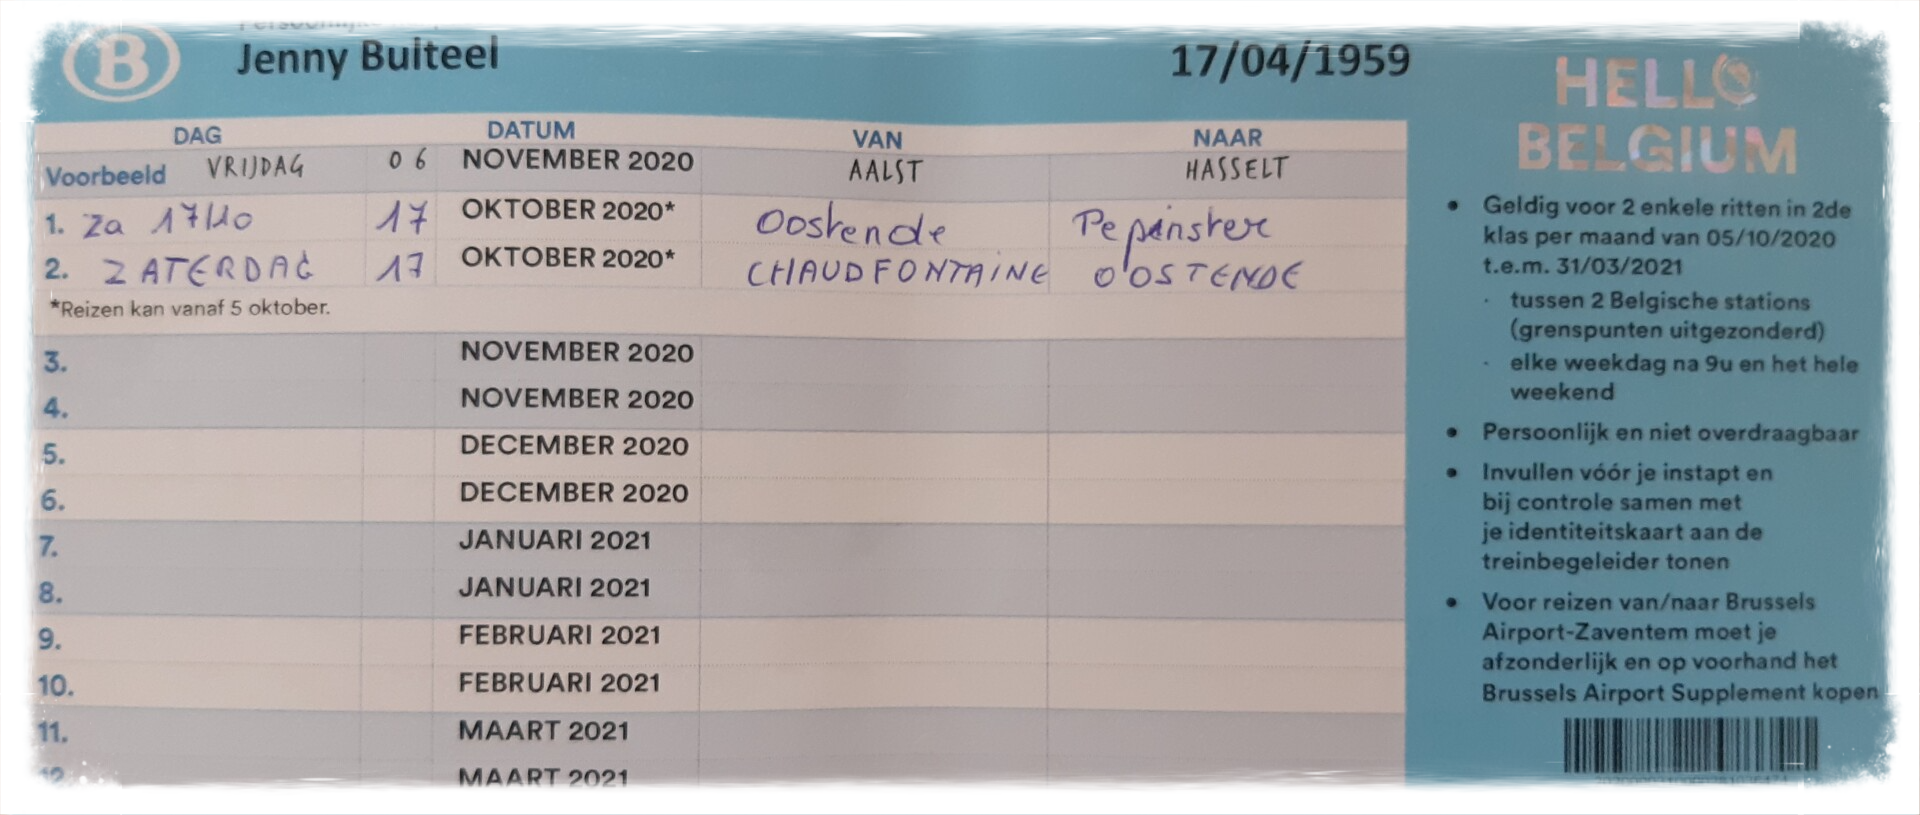 B
Jenny Buiteel 17/04/1959
HELLO
BELGIUM
DAG DATUM VAN NAAR
Voorbeeld VRIJDAG 06 NOVEMBER 2020 AALST HASSELT
1. Za 17/10 17 OKTOBER 2020* Oostende Pepinster
2. ZATERDAG 17 OKTOBER 2020* CHAUDFONTAINE OOSTENDE
*Reizen kan vanaf 5 oktober.
3. NOVEMBER 2020
4. NOVEMBER 2020
5. DECEMBER 2020
6. DECEMBER 2020
7. JANUARI 2021
8. JANUARI 2021
9. FEBRUARI 2021
10. FEBRUARI 2021
11. MAART 2021
12. MAART 2021
• Geldig voor 2 enkele ritten in 2de
klas per maand van 05/10/2020
t.e.m. 31/03/2021
· tussen 2 Belgische stations
(grenspunten uitgezonderd)
· elke weekdag na 9u en het hele
weekend
• Persoonlijk en niet overdraagbaar
• Invullen vóór je instapt en
bij controle samen met
je identiteitskaart aan de
treinbegeleider tonen
• Voor reizen van/naar Brussels
Airport-Zaventem moet je
afzonderlijk en op voorhand het
Brussels Airport Supplement kopen